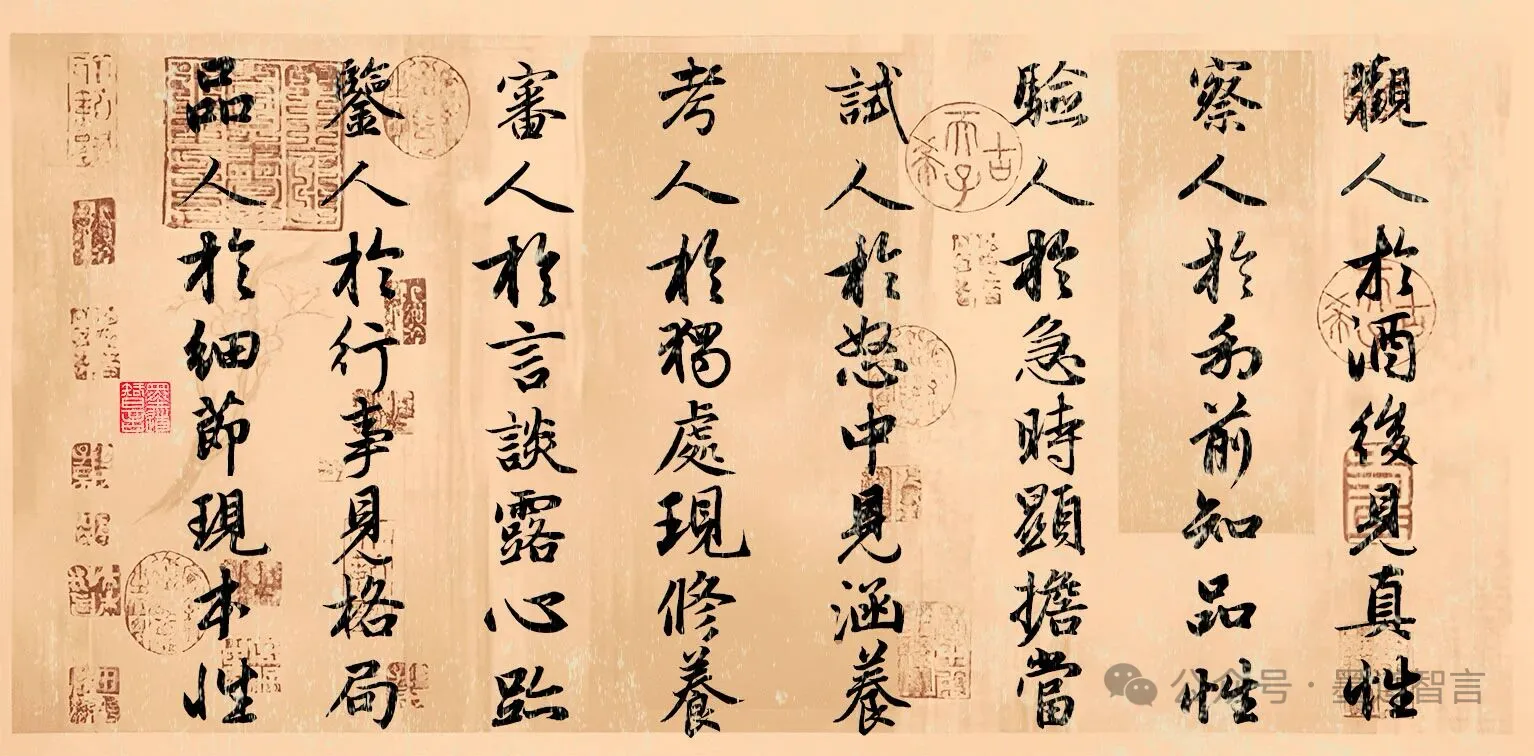 觀人於酒後見真性
察人於利前知品性
驗人於急時顯擔當
試人於怒中見涵養
考人於獨處現修養
審人於言談露心跡
鑒人於行事見格局
品人於細節現本性
古希天子
公众号·墨趣智言